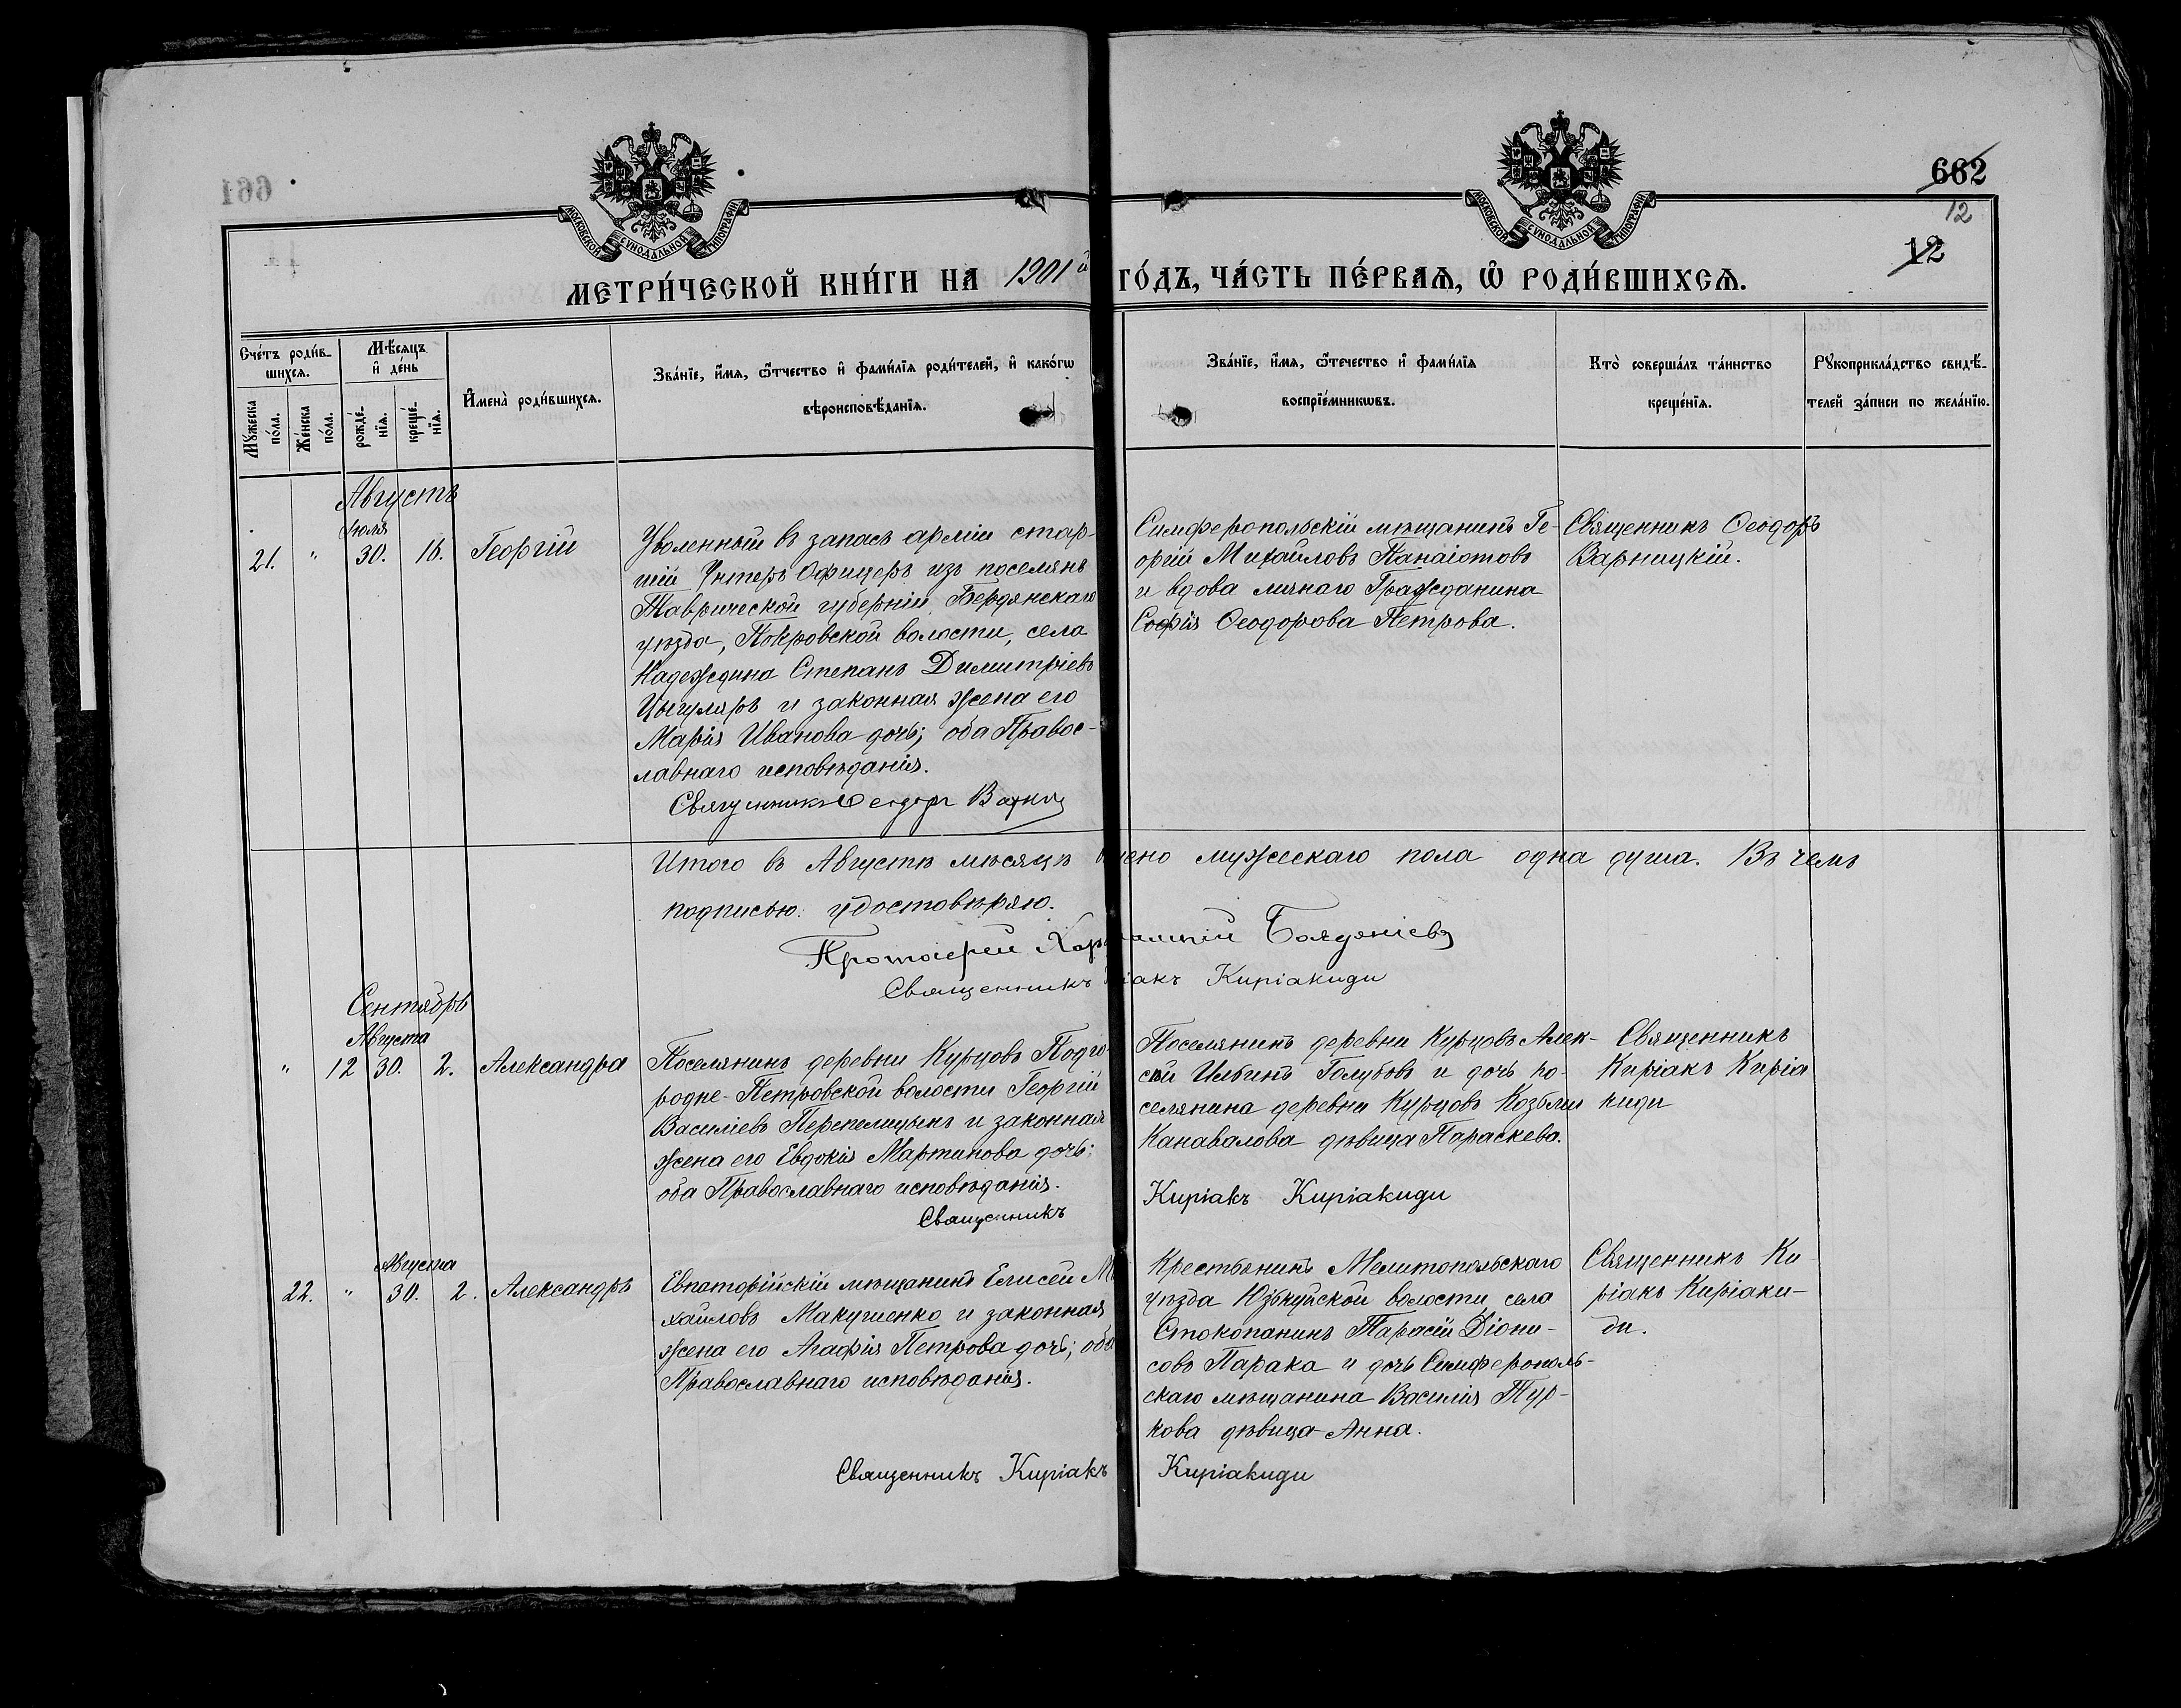 661
662
12
12
МОСКОВСКОЙ СѴНОДАЛЬНОЙ ТИПОГРАФІИ
МОСКОВСКОЙ СѴНОДАЛЬНОЙ ТИПОГРАФІИ
МЕТРИ́ЧЕСКОЙ КНИ́ГИ НА 1901й ГО́ДЪ, ЧА́СТЬ ПЕ́РВАѦ, Ѡ҆ РОДИ́ВШИХСѦ.
Сче́тъ роди́в-
шихсѧ.
Мѣ́сѧцъ
и҆ де́нь
Мꙋ́жеска
по́ла.
Же́нска
по́ла.
рожде́-
нїѧ.
креще́-
нїѧ.
И҆мена̀ роди́вшихсѧ.
Зва́нїе, и҆́мѧ, ѻ҆́тчество и҆ фами́лїѧ роди́телей, и҆ како́гѡ
вѣроисповѣ́данїѧ.
Зва́нїе, и҆́мѧ, ѻ҆те́чество и҆ фами́лїѧ
воспрїе́мникѡвъ.
Кто̀ соверша́лъ та́инство
креще́нїѧ.
Рꙋкоприкла́дство свидѣ́-
телей за́писи по жела́нїю.
Августъ
Іюля
21. " 30. 16. Георгій
Уволенный въ запасъ арміи стар-
шій Унтеръ Офицеръ изъ поселянъ
Таврической губерніи, Бердянскаго
уѣзда, Покровской волости, села
Надеждина Степанъ Димитріевъ
Цыгуляръ и законная жена его
Марія Иванова дочь; оба Правос-
лавнаго исповѣданія.
Священникъ Ѳеодоръ
Симферопольскій мѣщанинъ Ге-
оргій Михайловъ Панаіотовъ
и вдова личнаго Гражданина
Софія Ѳеодорова Петрова.
Священникъ Ѳеодоръ
Варницкій.
Итого въ Августѣ мѣсяцѣ мужескаго пола одна душа. Въ чемъ
подписью удостовѣряю.
Протоіерей
Священникъ Киріакиди
Сентябрь
Августа
" 12 30. 2. Александра
Поселянинъ деревни Курцовъ Подго-
родне-Петровской волости Георгій
Василіевъ Перепелицынъ и законная
жена его Евдокія Мартинова дочь;
оба Православнаго исповѣданія.
Священникъ
Поселянинъ деревни Курцовъ Алек-
сѣй Ильинъ Голубовъ и дочь по-
селянина деревни Курцовъ Козьми
Канавалова дѣвица Параскева.
Киріакъ Киріакиди
Священникъ
Киріакъ Киріа
киди
Августа
22. " 30. 2. Александръ
Евпаторійскій мѣщанинъ Елисей Ми
хайловъ Макушенко и законная
жена его Агафія Петрова дочь; оба
Православнаго исповѣданія.
Священникъ Киріакъ
Крестьянинъ Мелитопольскаго
уѣзда Юзкуйской волости села
Стокопанинъ Тарасій Діони-
совъ Парака и дочь Симферополь-
скаго мѣщанина Василія Тур-
кова дѣвица Анна.
Киріакиди
Священникъ Ки
ріакъ Киріаки-
ди.